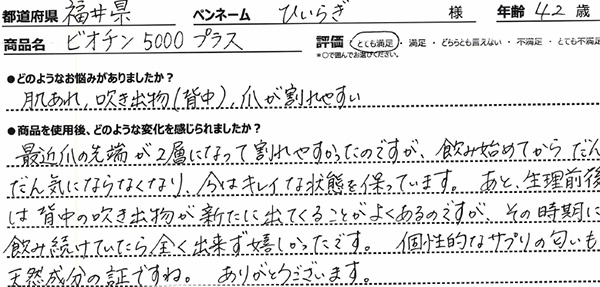 都道府県 福井県 ペンネーム ひいらぎ 様 年齢 42 歳
商品名 ビオチン5000プラス 評価 とても満足 ・ 満足 ・ どちらとも言えない ・ 不満足 ・ とても不満足
*○で囲んでお選びください。
●どのようなお悩みがありましたか?
肌あれ, 吹き出物(背中), 爪が割れやすい
●商品を使用後、どのような変化を感じられましたか?
最近爪の先端が2層になって割れやすかったのですが、飲み始めてからだん
だん気にならなくなり、今はキレイな状態を保っています。あと、生理前後
は背中の吹き出物が新たに出てくることがよくあるのですが、その時期に
飲み続けていたら全く出来ず嬉しかったです。 個性的なサプリの匂いも
天然成分の証ですね。 ありがとうございます。